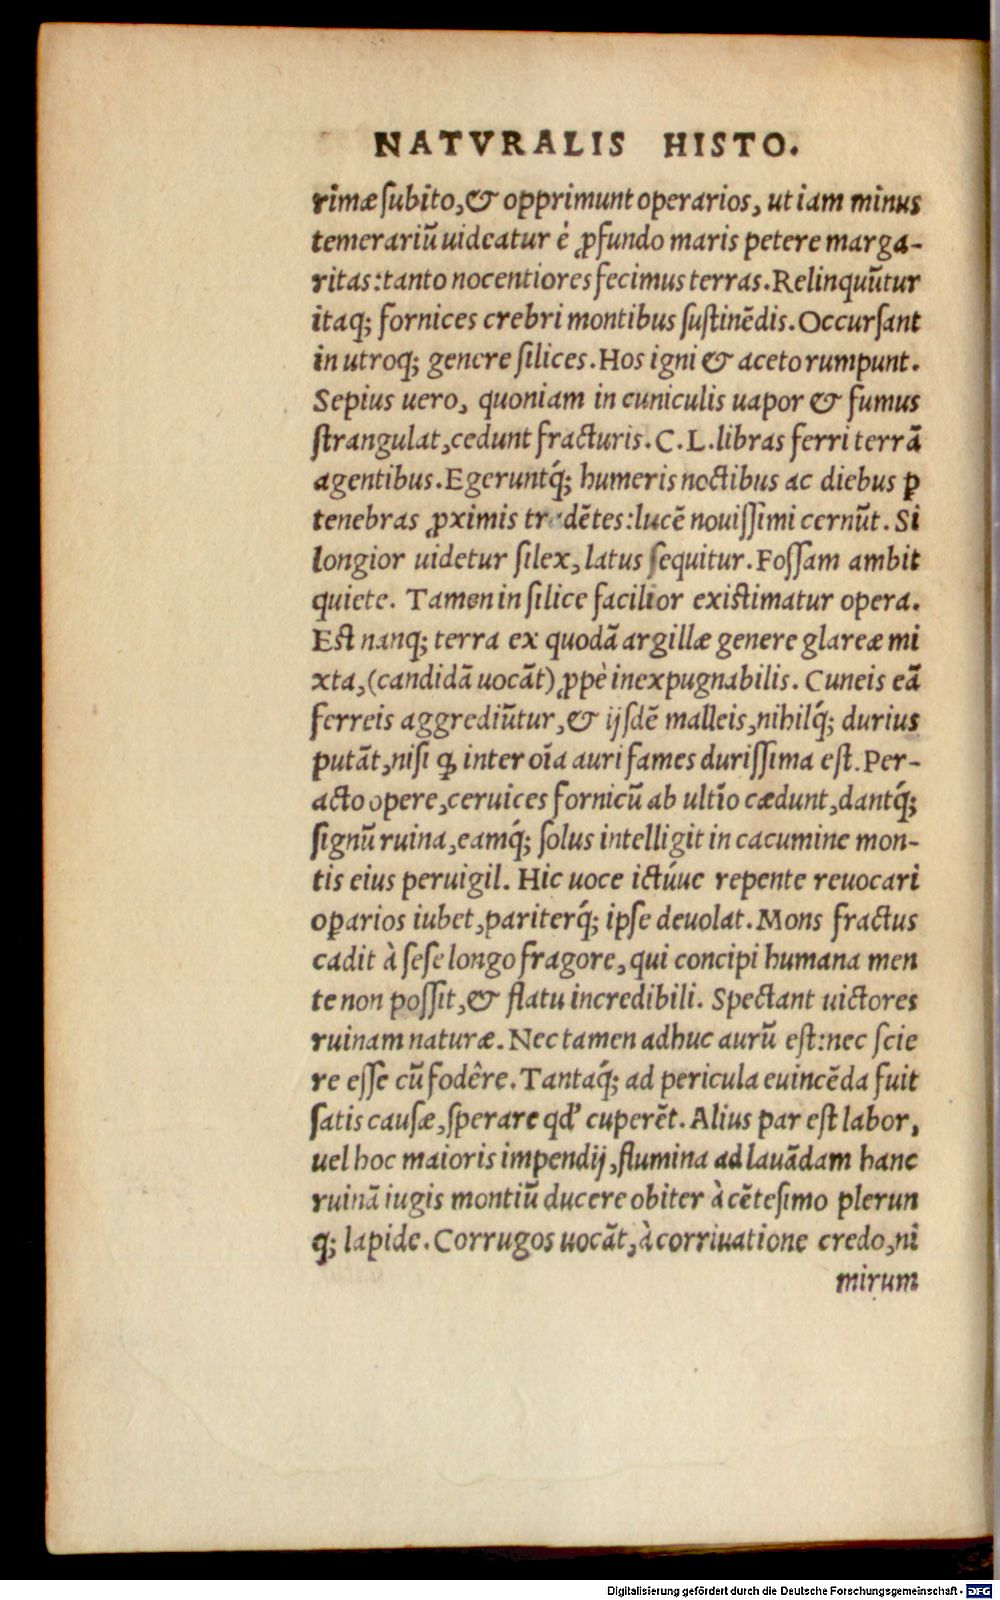 NATVRALIS HISTO.
rimæ ſubito, & opprimunt operarios, ut iam minus
temerariũ uideatur è ꝓfundo maris petere marga-
ritas: tanto nocentiores fecimus terras. Relinquũtur
itaq; fornices crebri montibus ſuſtinẽdis. Occurſant
in utroq; genere ſilices. Hos igni & aceto rumpunt.
Sepius uero, quoniam in cuniculis uapor & fumus
ſtrangulat, cedunt fracturis. C. L. libras ferri terrã
agentibus. Egeruntq́; humeris noctibus ac diebus ꝑ
tenebras ꝓximis dẽtes: lucẽ nouiſſimi cernũt. Si
longior uidetur ſilex, latus ſequitur. Foſſam ambit
quiete. Tamen in ſilice facilior existimatur opera.
Eſt nanq; terra ex quodã argillæ genere glareæ mi
xta, (candidã uocãt) ꝓpè inexpugnabilis. Cuneis eã
ferreis aggrediũtur, & ijſdẽ malleis, nihilq́; durius
putãt, niſi ꝙ inter oĩa auri fames duriſſima eſt. Per-
acto opere, ceruices fornicũ ab ultĩo cædunt, dantq́;
ſignũ ruina, eamq́; ſolus intelligit in cacumine mon-
tis eius peruigil. Hic uoce ictúue repente reuocari
oꝑarios iubet, pariterq́; ipſe deuolat. Mons fractus
cadit à ſeſe longo fragore, qui concipi humana men
te non poſſit, & flatu incredibili. Spectant uictores
ruinam naturæ. Nec tamen adhuc aurũ eſt: nec ſcie
re eſſe cũ fodêre. Tantaq́; ad pericula euincẽda fuit
ſatis cauſæ, ſperare qd' cuperẽt. Alius par eſt labor,
uel hoc maioris impendij, flumina ad lauãdam hanc
ruinã iugis montiũ ducere obiter à cẽteſimo plerun
q; lapide. Corrugos uocãt, à corriuatione credo, ni
mirum
Digitalisierung gefördert durch die Deutsche Forschungsgemeinschaft - DFG